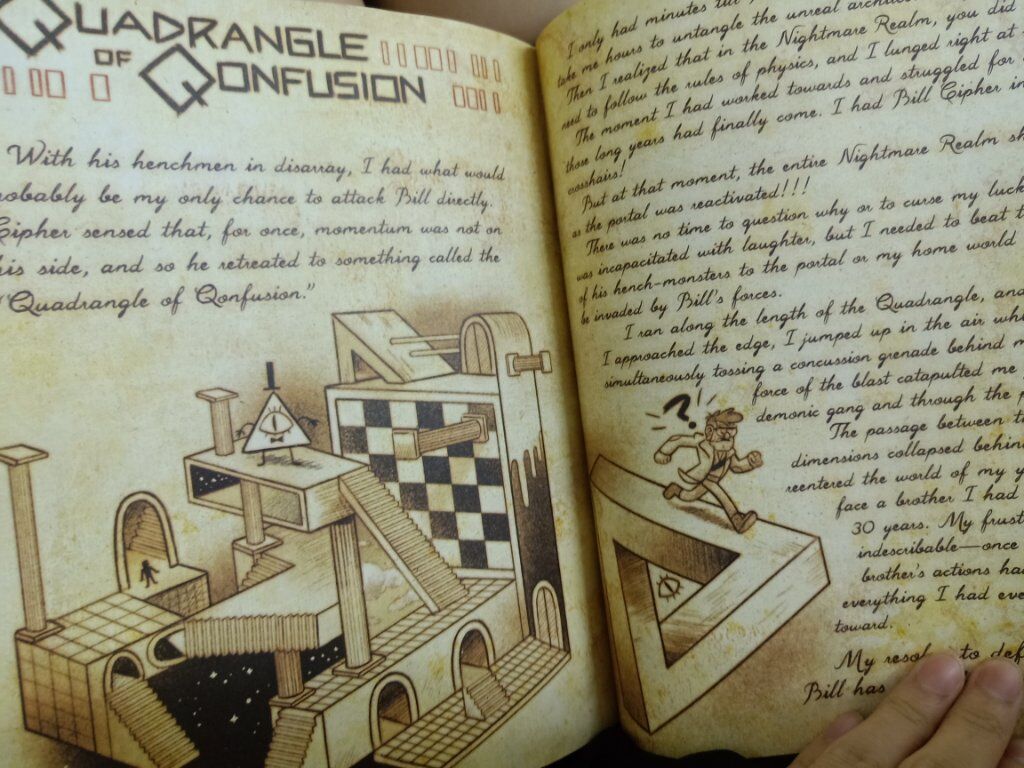 QUADRANGLE
OF QONFUSION
With his henchmen in disarray, I had what would
robably be my only chance to attack Bill directly.
Cipher sensed that, for once, momentum was not on
his side, and so he retreated to something called the
"Quadrangle of Qonfusion."
I only had minutes
take me hours to untangle the unreal
Then I realized that in the Nightmare Realm, you did
need to follow the rules of physics, and I lunged right at
The moment I had worked towards and struggled for
those long years had finally come. I had Bill Cipher in
crosshairs!
But at that moment, the entire Nightmare Realm sh
as the portal was reactivated!!!
There was no time to question why or to curse my luck
was incapacitated with laughter, but I needed to beat
of his hench-monsters to the portal or my home world
be invaded by Bill's forces.
I ran along the length of the Quadrangle, and
I approached the edge, I jumped up in the air
simultaneously tossing a concussion grenade behind
force of the blast catapulted me
demonic gang and through the
The passage between
dimensions collapsed behind
reentered the world of my
face a brother I had
30 years. My
indescribable—once
brother's actions
everything I had
toward.
?
My to
Bill has